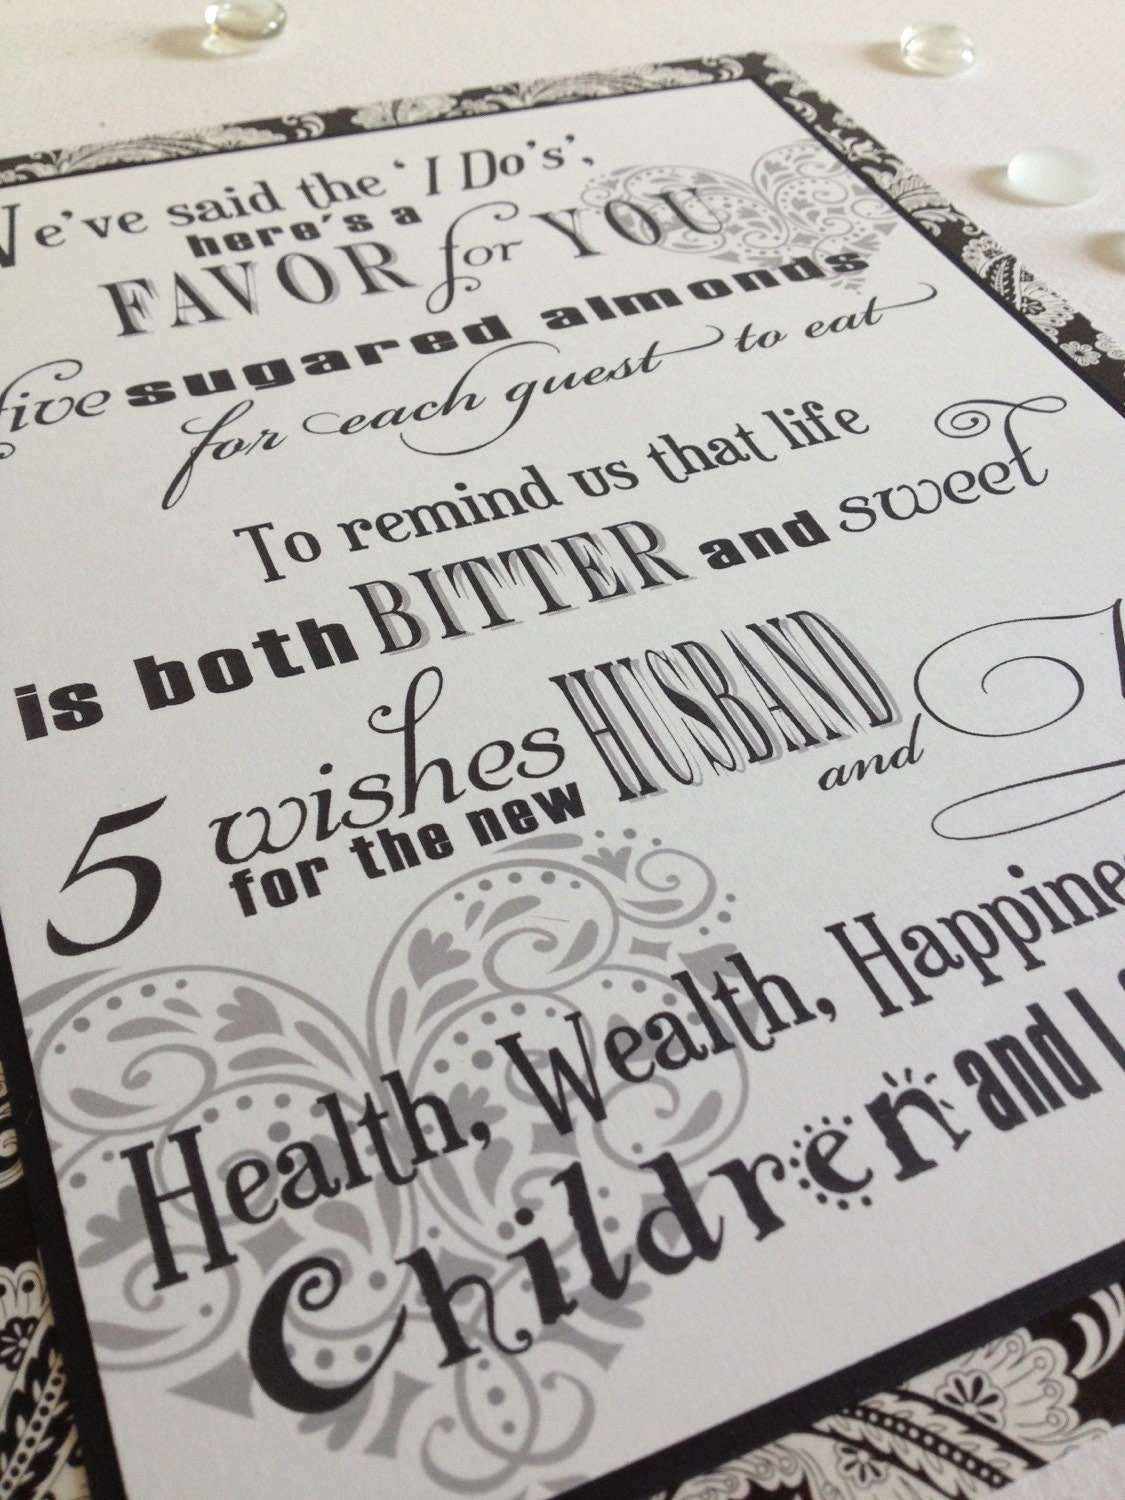 We've said the 'I Do's',
here's a
FAVOR for YOU
five sugared almonds
for each guest to eat
To remind us that life
is both BITTER and sweet
5 wishes
for the new HUSBAND and
Health, Wealth, Happine
Children and